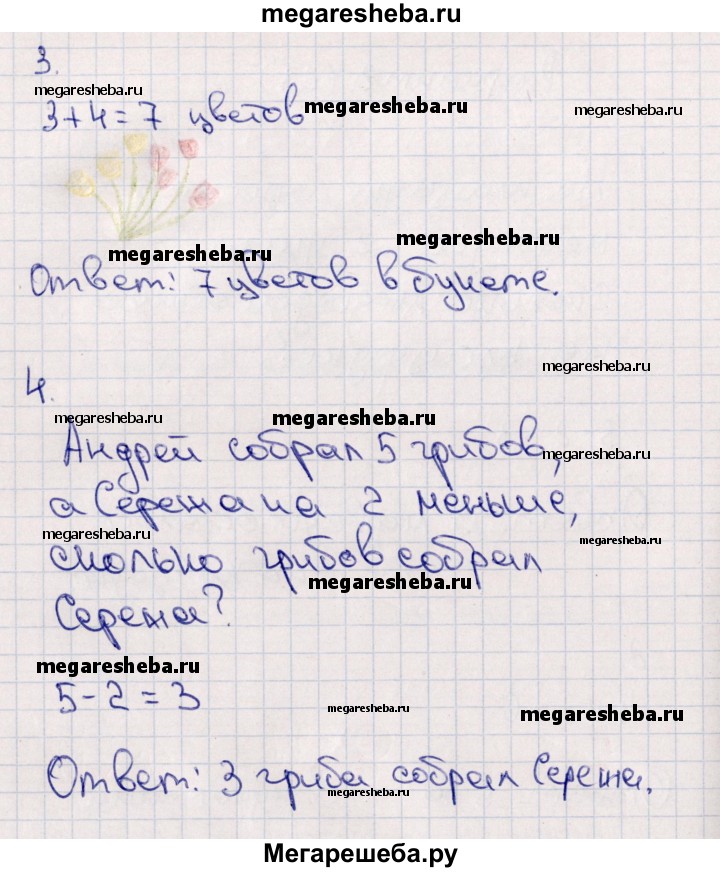 megaresheba.ru
3.
megaresheba.ru
3+4=7 цветов
megaresheba.ru
megaresheba.ru
megaresheba.ru
megaresheba.ru
Ответ: 7 цветов в букете.
megaresheba.ru
4.
megaresheba.ru
megaresheba.ru
Андрей собрал 5 грибов,
megaresheba.ru
а Сережа на 2 меньше,
megaresheba.ru
megaresheba.ru
сколько грибов собрал
megaresheba.ru
Сережа?
megaresheba.ru
5-2=3
megaresheba.ru
megaresheba.ru
Ответ: 3 гриба собрал Сережа.
megaresheba.ru
Мегарешеба.ру